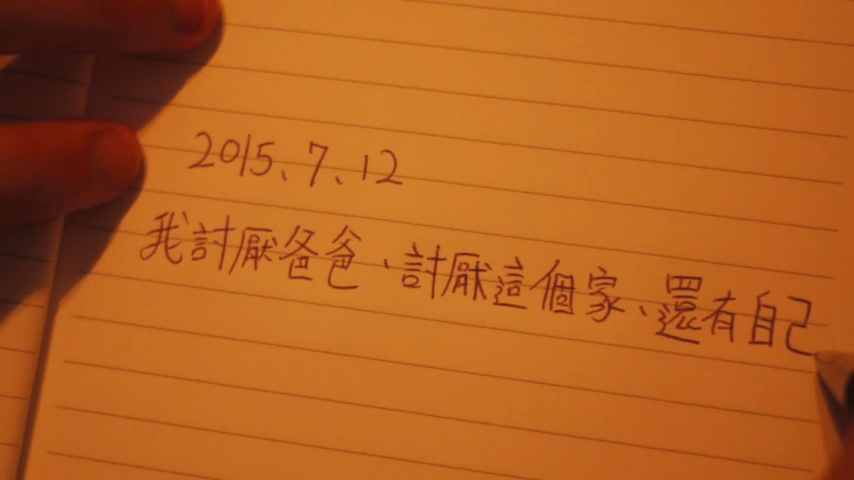 2015、7、12
我討厭爸爸、討厭這個家、還有自己